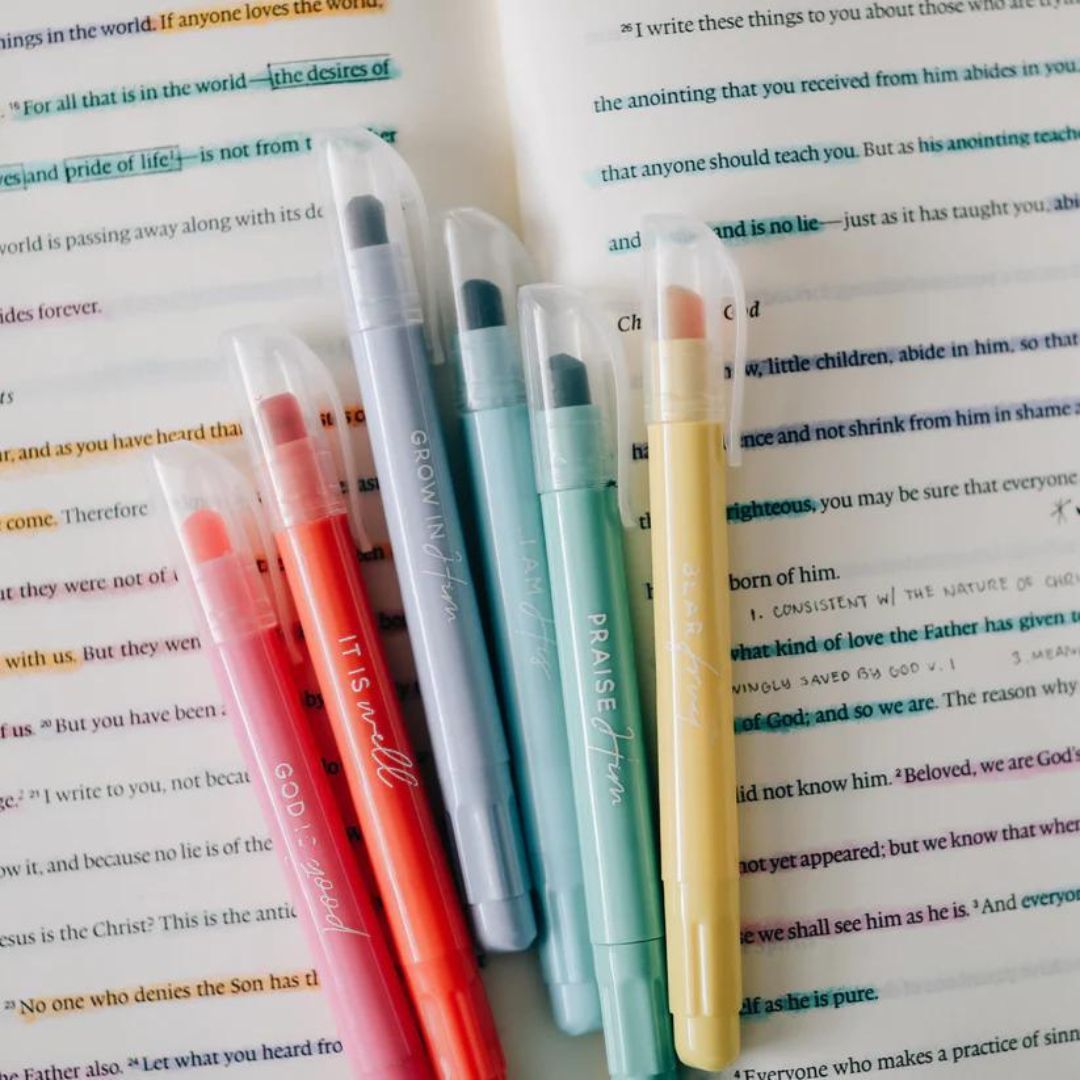 things in the world. If anyone loves the world,
. ¹⁶ For all that is in the world—the desires of
yes and pride of life—is not from t
world is passing away along with its de
ides forever.
ts
r, and as you have heard that
come. Therefore
ut they were not of
with us. But they wen
f us. ²⁰ But you have been
ge. ²¹ I write to you, not becau
ow it, and because no lie is of the
esus is the Christ? This is the antic
²³ No one who denies the Son has th
he Father also. ²⁴ Let what you heard fro
GOD IS good
IT IS well
GROW IN Him
I AM His
PRAISE Him
²⁶ I write these things to you about those who are
the anointing that you received from him abides in you,
that anyone should teach you. But as his anointing teache
and and is no lie—just as it has taught you, abi
Ch God
now, little children, abide in him, so that
ence and not shrink from him in shame a
righteous, you may be sure that everyone
born of him.
1. CONSISTENT W/ THE NATURE OF CHRI
what kind of love the Father has given to
VINGLY SAVED BY GOD V. 1 3. MEAN
of God; and so we are. The reason why
did not know him. ² Beloved, we are God's
not yet appeared; but we know that when
se we shall see him as he is. ³ And everyon
elf as he is pure.
⁴ Everyone who makes a practice of sinn